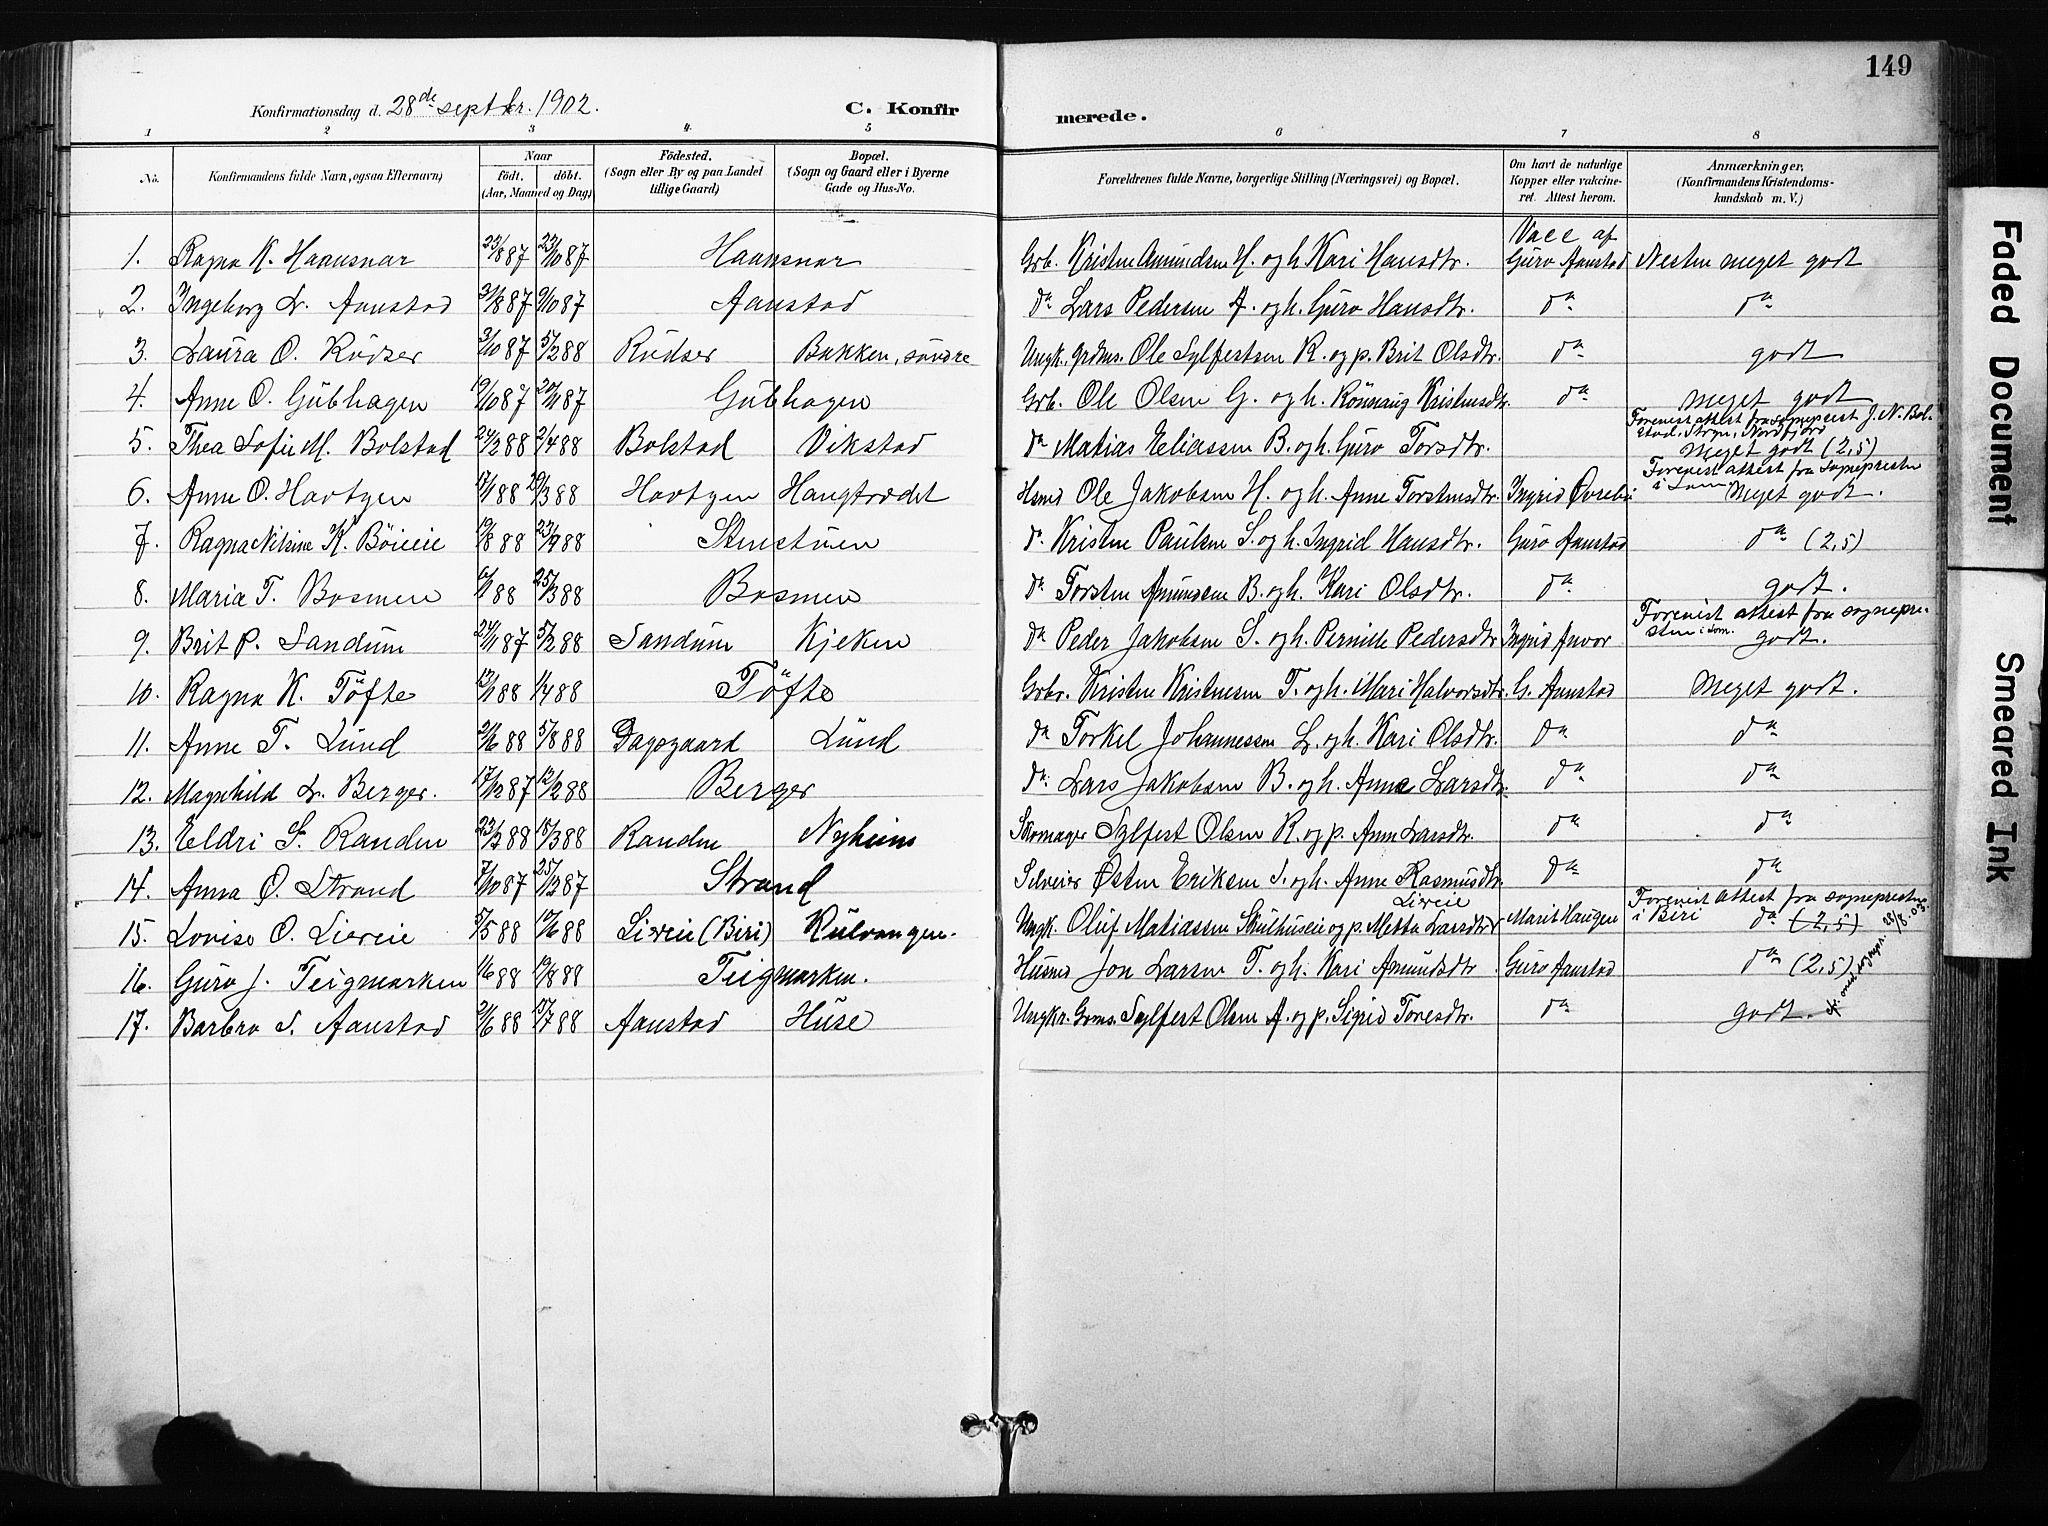 149
Konfirmationsdag d. 28de septbr. 1902.
C. Konfirmerede.
1 2 3 4 5 6 7 8
No. Konfirmandens fulde Navn, ogsaa Efternavn) Naar födt. döbt. (Aar, Maaned og Dag) Födested. (Sogn eller By og paa Landet tillige Gaard) Bopæl. (Sogn og Gaard eller i Byerne Gade og Hus-No. Forældrenes fulde Navne, borgerlige Stilling (Næringsvei) og Bopæl. Om havt de naturlige Kopper eller vakcineret. Attest herom. Anmærkninger. (Konfirmandens Kristendomskundskab m. V.)
1. Ragna K. Haansnar 23/8 87 23/10 87 Haansnar Grb. Kristen Amundsen H. og h. Kari Hansdtr. Vacc af Guro Aanstad Nesten meget godt
2. Ingeborg L. Aanstad 31/8 87 9/10 87 Aanstad do Lars Pedersen A. og h. Guro Hansdtr. do do
3. Laura O. Rudser 3/10 87 5/2 88 Rudser Bakken, söndre Ungk. grdms. Ole Sylfestsen R. og p. Brit Olsdtr. do godt
4. Anne O. Gubhagen 19/10 87 20/11 87 Gubhagen Grb. Ole Olsen G. og h. Rönnaug Kristensdtr. do Meget godt
5. Thea Sofie M. Bolstad 24/2 88 2/4 88 Bolstad Vikstad do Matias Eliassen B. og h. Guro Torsdtr. Forevist attest fra sogneprest J. N. Bolstad. Stryn, Nordfjord Meget godt (2,5)
6. Anne O. Havtgen 17/1 88 29/3 88 Havtgen Haugtrædet Hsmd Ole Jakobsen H. og h. Anne Torstensdtr. Ingrid Øvrebö Forevist attest fra Sognepresten i Lom Meget godt.
7. Ragna Nilsine K. Böieie 19/8 88 23/9 88 Stenstuen do. Kristen Paulsen S. og h. Ingrid Hansdtr. Guro Aanstad do (2,5)
8. Maria T. Bosmen 6/1 88 25/3 88 Bosmen do Torsten Amundsen B. og h. Kari Olsdtr. do godt.
9. Brit P. Sandum 24/11 87 5/2 88 Sandum Kjeken do Peder Jakobsen S. og h. Pernille Pedersdtr Ingrid Anvor Forevist attest fra sognepresten i Lom. godt.
10. Ragna K. Töfte 13/1 88 1/4 88 Töfte Grbr. Kristen Kristensen T. og h. Mari Halvorsdtr. G. Aanstad Meget godt.
11. Anne T. Lund 21/6 88 5/8 88 Dagsgaard Lund do Torkel Johannessen L. og h. Kari Olsdtr. do do
12. Magnhild L. Berger. 17/12 87 12/2 88 Berger do. Lars Jakobsen B. og h. Anne Larsdtr. do do
13. Eldri S. Randen 23/2 88 18/3 88 Randen Nyheim Skomager Sylfest Olsen R. og p. Anne Larsdtr. do do
14. Anna Ø. Strand 7/10 87 25/12 87 Strand Selveier Østen Eriksen S. og h. Anne Rasmusdtr. do do
15. Lovise O. Liereie 5/5 88 10/6 88 Liereie (Biri) Kulvangen. Ungk. Oluf Matiassen Skulhuseie og p. Mette Larsdtr Liereie Marit Haugen Forevist attest fra sognepresten i Biri do (2,5) 28/8.03.
16. Guro J. Teigmarken 1/6 88 19/8 88 Teigmarken. Husmd Jon Larsen T. og h. Kari Amundsdtr. Guro Aanstad do (2,5)
17. Barbro S. Aanstad 21/6 88 15/7 88 Aanstad Huse Ungkr. Grms. Sylfest Olsen A. og p. Sigrid Toresdtr. do godt.
Faded Document
Smeared Ink